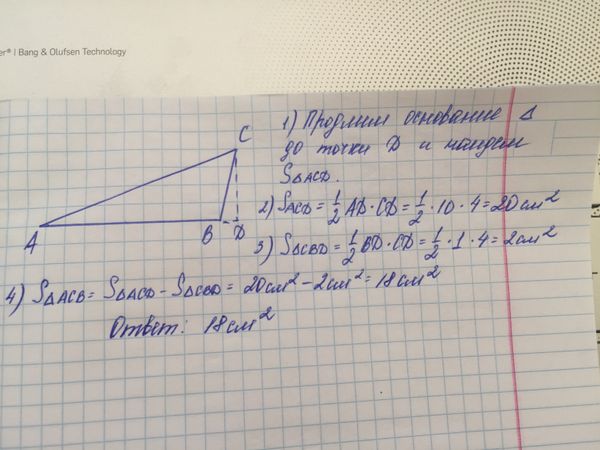 er® | Bang & Olufsen Technology
1) Продлим основание Δ
до точки D и найдем
SΔACD.
2) SACD = 1/2 AD · CD = 1/2 · 10 · 4 = 20 см²
3) SΔCBD = 1/2 BD · CD = 1/2 · 1 · 4 = 2 см²
C
A
B
D
4) SΔACB = SΔACD - SΔCBD = 20 см² - 2 см² = 18 см²
Ответ: 18 см²